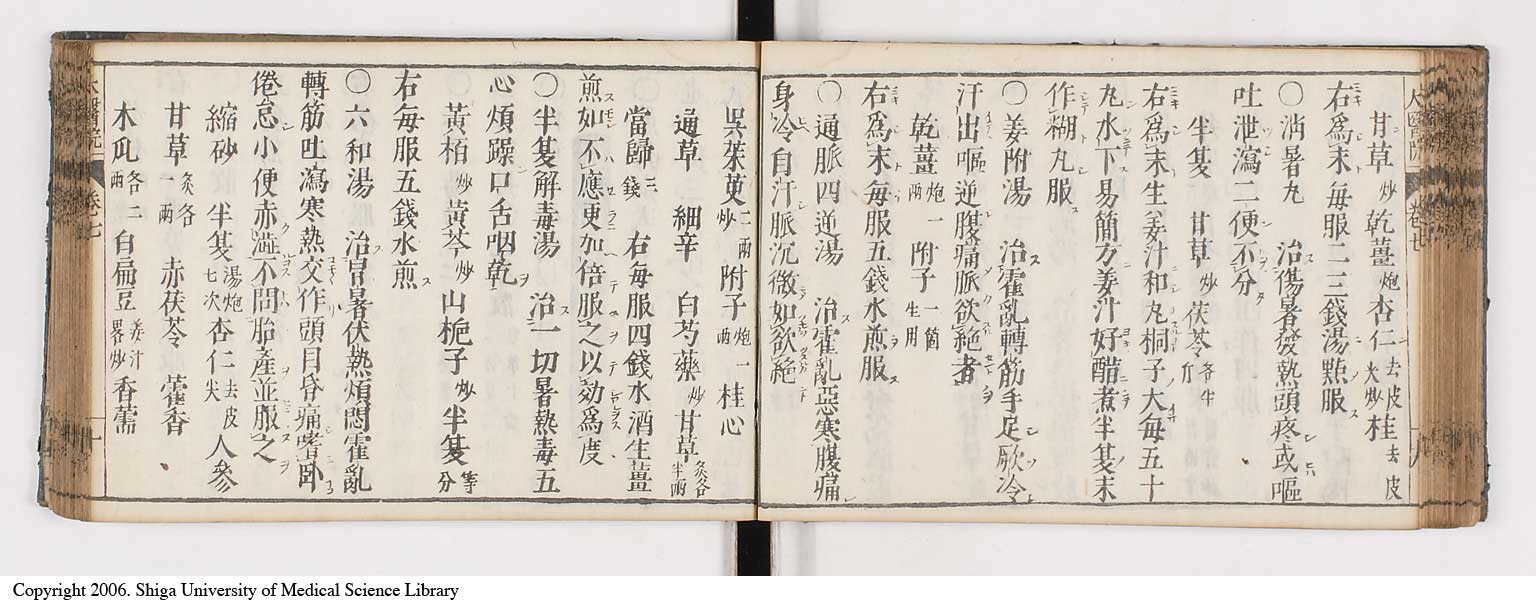 甘草炒 乾薑炮 杏仁去皮尖炒 桂去皮
右爲末毎服二三錢湯㸃服
〇消暑丸 治傷暑發熱頭疼或嘔
吐泄瀉二便不分
半夏 甘草炒 茯苓各半斤
右爲末生姜汁和丸桐子大毎五十
丸水下易簡方姜汁好醋煮半夏末
作糊丸服
〇姜附湯 治霍亂轉筋手足厥冷
汗出嘔逆腹痛脈欲絶者
乾薑炮一兩 附子一箇生用
右爲末毎服五錢水煎服
〇通脈四逆湯 治霍亂惡寒腹痛
身冷自汗脈沉微如欲絶
呉茱萸二兩炒 附子炮一兩 桂心
通草 細辛 白芍藥炒 甘草炙各半兩
當歸三錢 右毎服四錢水酒生薑
煎如不應更加倍服之以効爲度
〇半夏解毒湯 治一切暑熱毒五
心煩躁口舌咽乾
黄栢炒 黄芩炒 山梔子炒 半夏等分
右毎服五錢水煎
〇六和湯 治冒暑伏熱煩悶霍亂
轉筋吐瀉寒熱交作頭目昏痛嗜卧
倦怠小便赤澁不問胎産並服之
縮砂 半夏湯炮七次 杏仁去皮尖 人參
甘草炙各一兩 赤茯苓 藿香
木瓜各二兩 白扁豆姜汁畧炒 香薷
Copyright 2006. Shiga University of Medical Science Library